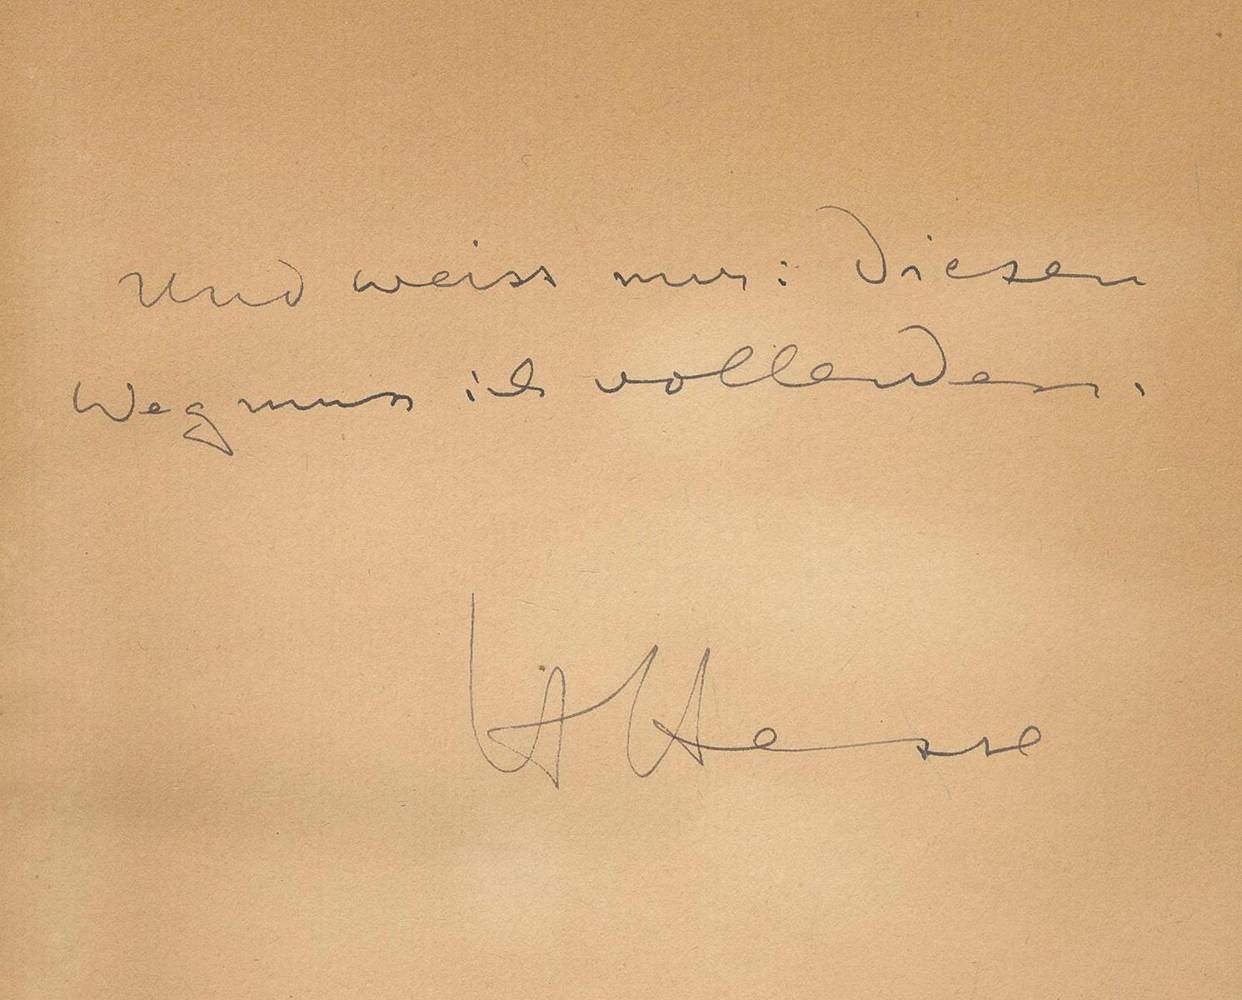 Und weiss nur: Diesen
Weg muss ich vollenden.
H Hesse